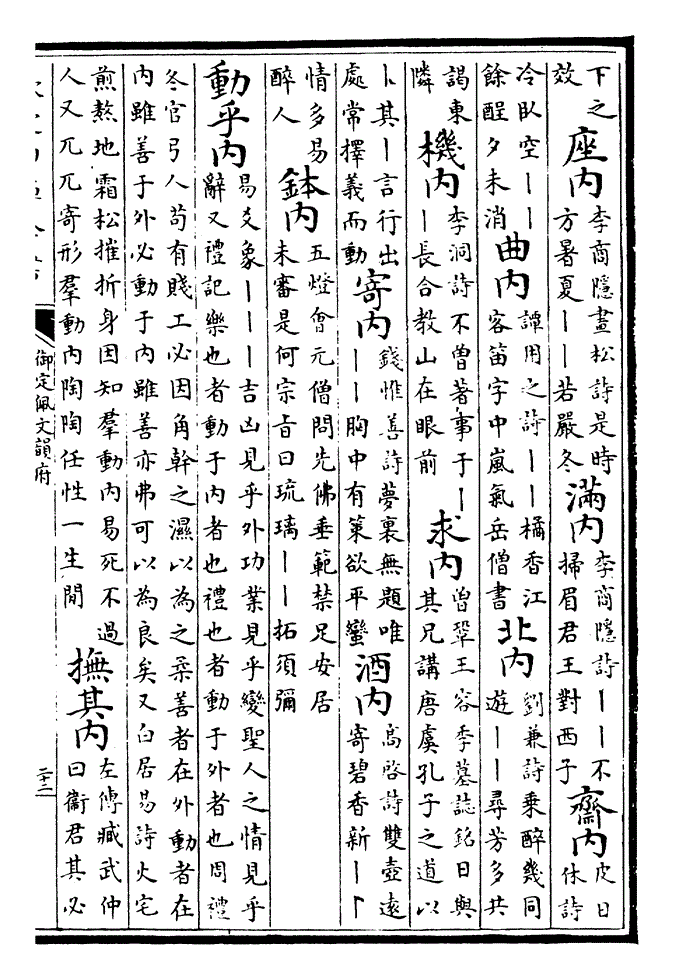 下之效 座内 李商隱畫松詩是時方暑夏丨丨若嚴冬 滿内 李商隱詩丨丨不掃眉君王對西子 齋内 皮日休詩
冷臥空丨丨餘酲夕未消 曲内 譚用之詩丨丨橘香江客笛字中嵐氣岳僧書 北内 劉兼詩乗醉幾同遊丨丨尋芳多共
謁東隣 機内 李洞詩不曾著事于丨丨長合教山在眼前 求内 曾鞏王容季墓誌銘日與其兄講唐虞孔子之道以
卜其丨言行出處常擇義而動 寄内 錢惟善詩夢裏無題唯丨丨胸中有策欲平蠻 酒内 髙啓詩雙壺逺寄碧香新丨丨
情多易醉人 鉢内 五燈㑹元僧問先佛垂範禁足安居未審是何宗㫖曰琉璃丨丨拓須彌
動乎内 易爻象丨丨丨吉凶見乎外功業見乎變聖人之情見乎辭又禮記樂也者動于内者也禮也者動于外者也周禮
冬官弓人苟有賤工必因角幹之濕以為之柔善者在外動者在内雖善于外必動于内雖善亦弗可以為良矣又白居易詩火宅
煎熬地霜松摧折身因知羣動内易死不過人又兀兀寄形羣動内陶陶任性一生閒 撫其内 左傳臧武仲曰衞君其必
御定佩文韻府